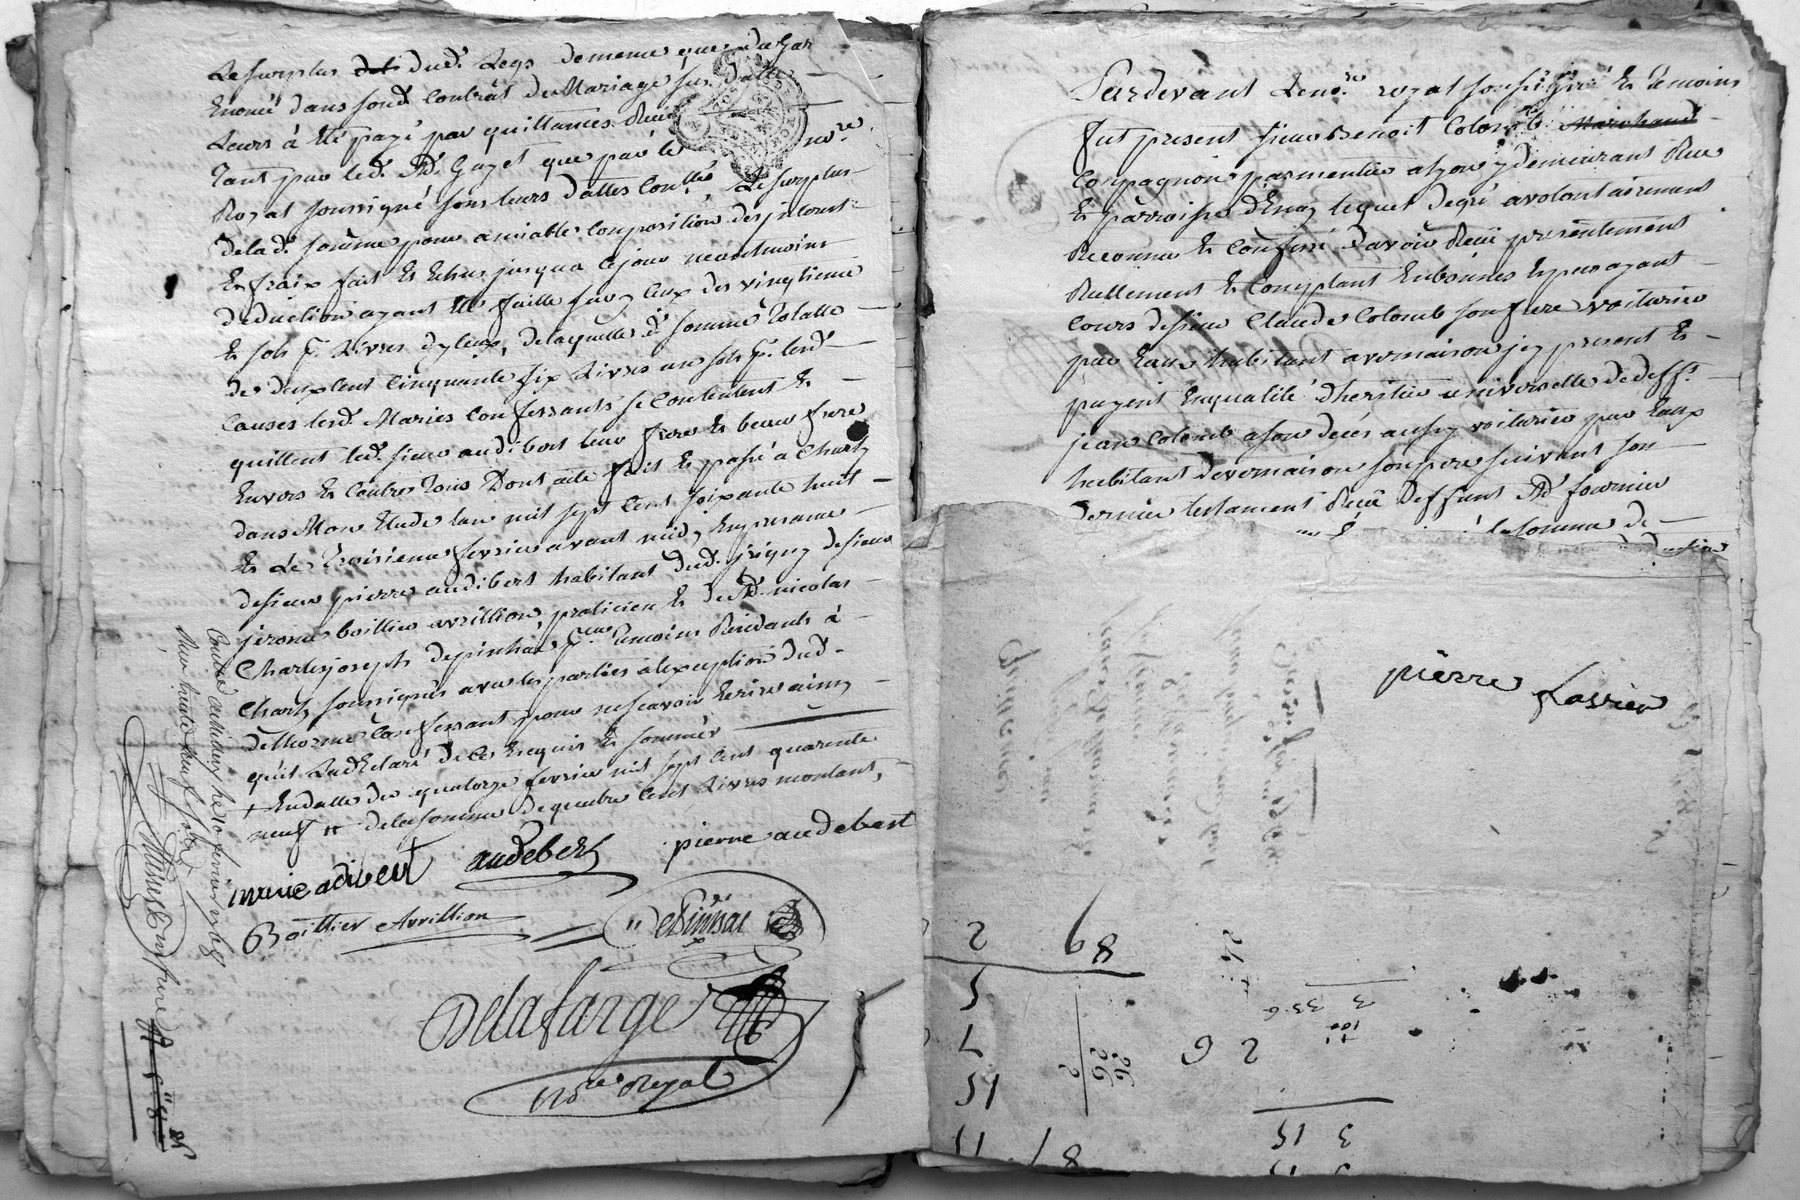 Le surplus dud. Legs de meme que du Gar
Enoncé dans son d. Contrat de Mariage sus datte
Leurs à été payé par quittances Reçû
Tant par led. Me. Gayet que par le no.re
Royal soussigné sous leurs dattes Conttes. Le surplus
de lad. somme pour amiable Composition des jnterest
Et fraix fait Et Echus jusqua ce jour neantmoins
deduction ayant été faitte sur ceux des vingtieme
Et sols p. Livres d'yceux, de laquelle d. somme totalle
de deux Cent Cinquante six Livres un sols p. lesd.
Causes lesd. Mariés Confessants se Contentent Et
quittent led. sieur audibert leur frere Et beau frere
Envers Et Contre Tous Dont acte fait Et passé à Charly
dans Mon Etude Lan mil sept Cent soixante huit
Et Le Troisieme fevrier avant midy En presence
de sieur pierre audibert habitant dud. jrigny de sieur
jerome boittier avrillion, praticien Et de Me. nicolas
Charles joseph depinhac Temoins Residants à
Charly soussignés avec les parties à l'exception dud.
delhorme Confessant pour ne sçavoir Ecrire ainsy
qu'il La Déclaré de ce Enquis Et sommér
+ En datte du quatorze fevrier mil sept Cent quarente
neuf ++ de la somme de quatre Cent Livres montant,
marie adibert audebert pierre audebert
Boittier Avrillion DePinhac
Delafarge
no.re Royal
Pardevant Le no.re royal soussigné Et temoins
fut present sieur Benoit Colomb Marchand
Compagnon passmentier a Lyon y demeurant Rue
Et parroisse d'Enay lequel de gré a volontairement
Reconnu Et Confessé d'avoir Reçû presentement
Réellement Et Comptant En bonnes Especes ayant
Cours de sieur Claude Colomb son frere voiturier
par Eaux habitant a vernaison jcy present Et
payent En qualité d'heritier universelle de deff.t
jean Colomb a son déces aussy voiturier par Eaux
habitant de vernaison son pere suivant son
dernier testament Reçû Deffunt Me. fournier
la somme de
pierre Lassieu
2 68
5
7
15
11 81
26
26
2
2 6
3
336
3 15